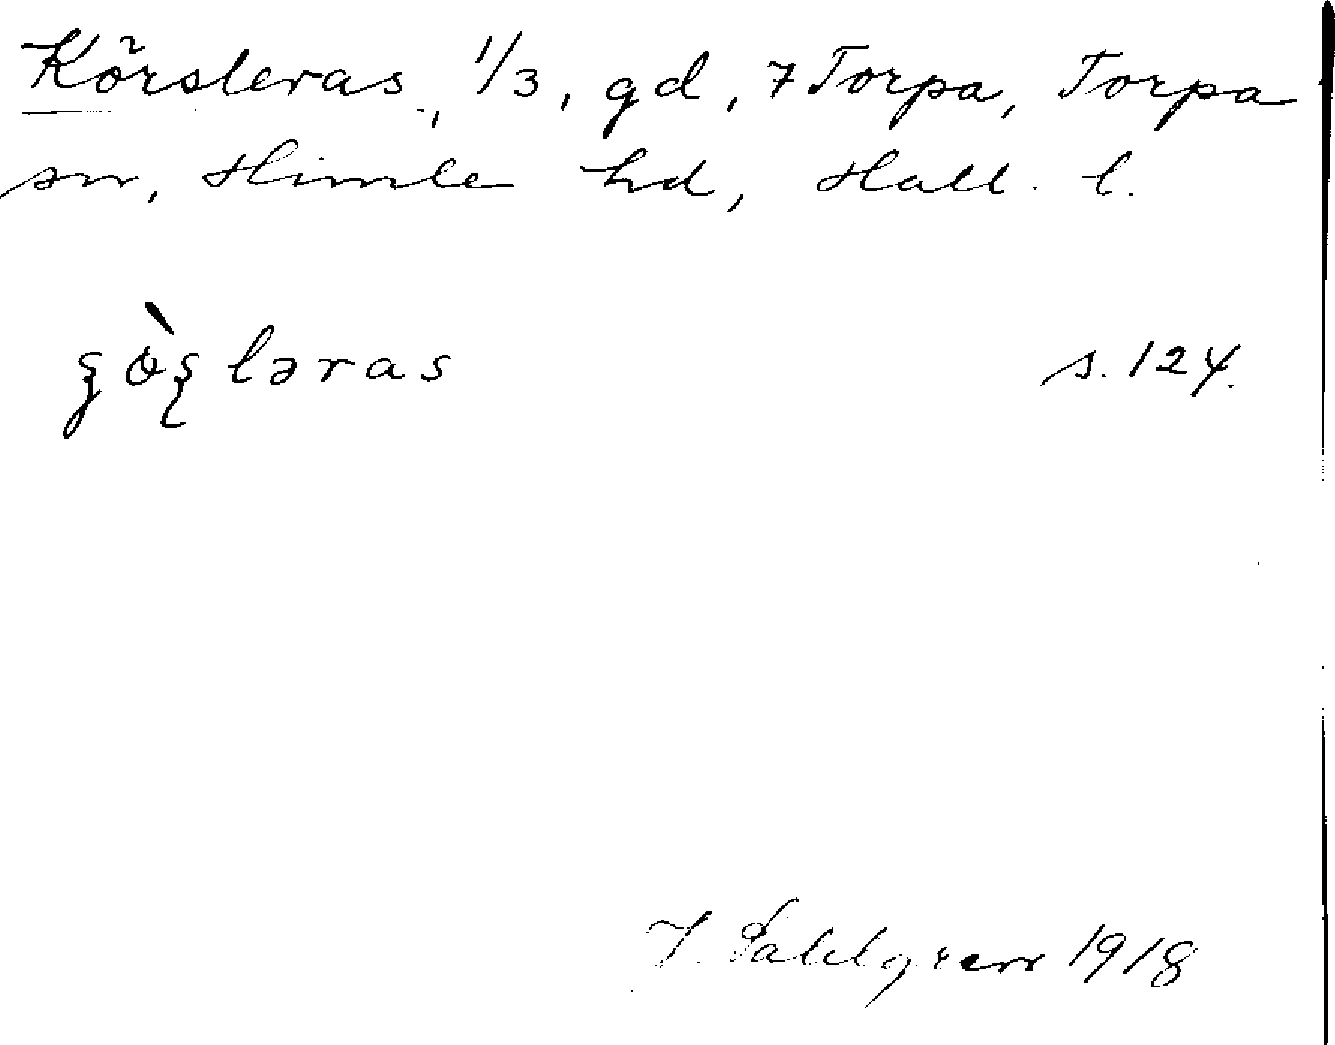 Körsleras, 1/3, gd, 7 Torpa, Torpa
sn, Himle hd, Hall. l.
ləras s. 124.
J. Sahlgren 1918